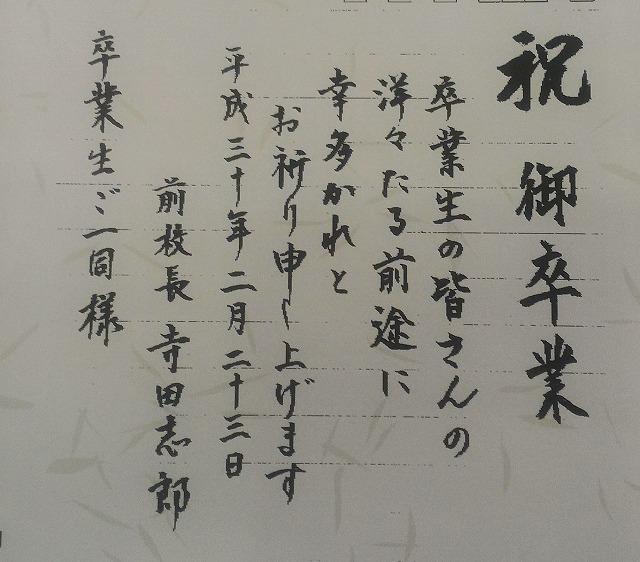 祝御卒業
卒業生の皆さんの
洋々たる前途に
幸多かれと
お祈り申し上げます
平成三十年二月二十三日
前校長 寺田志郎
卒業生ご一同様